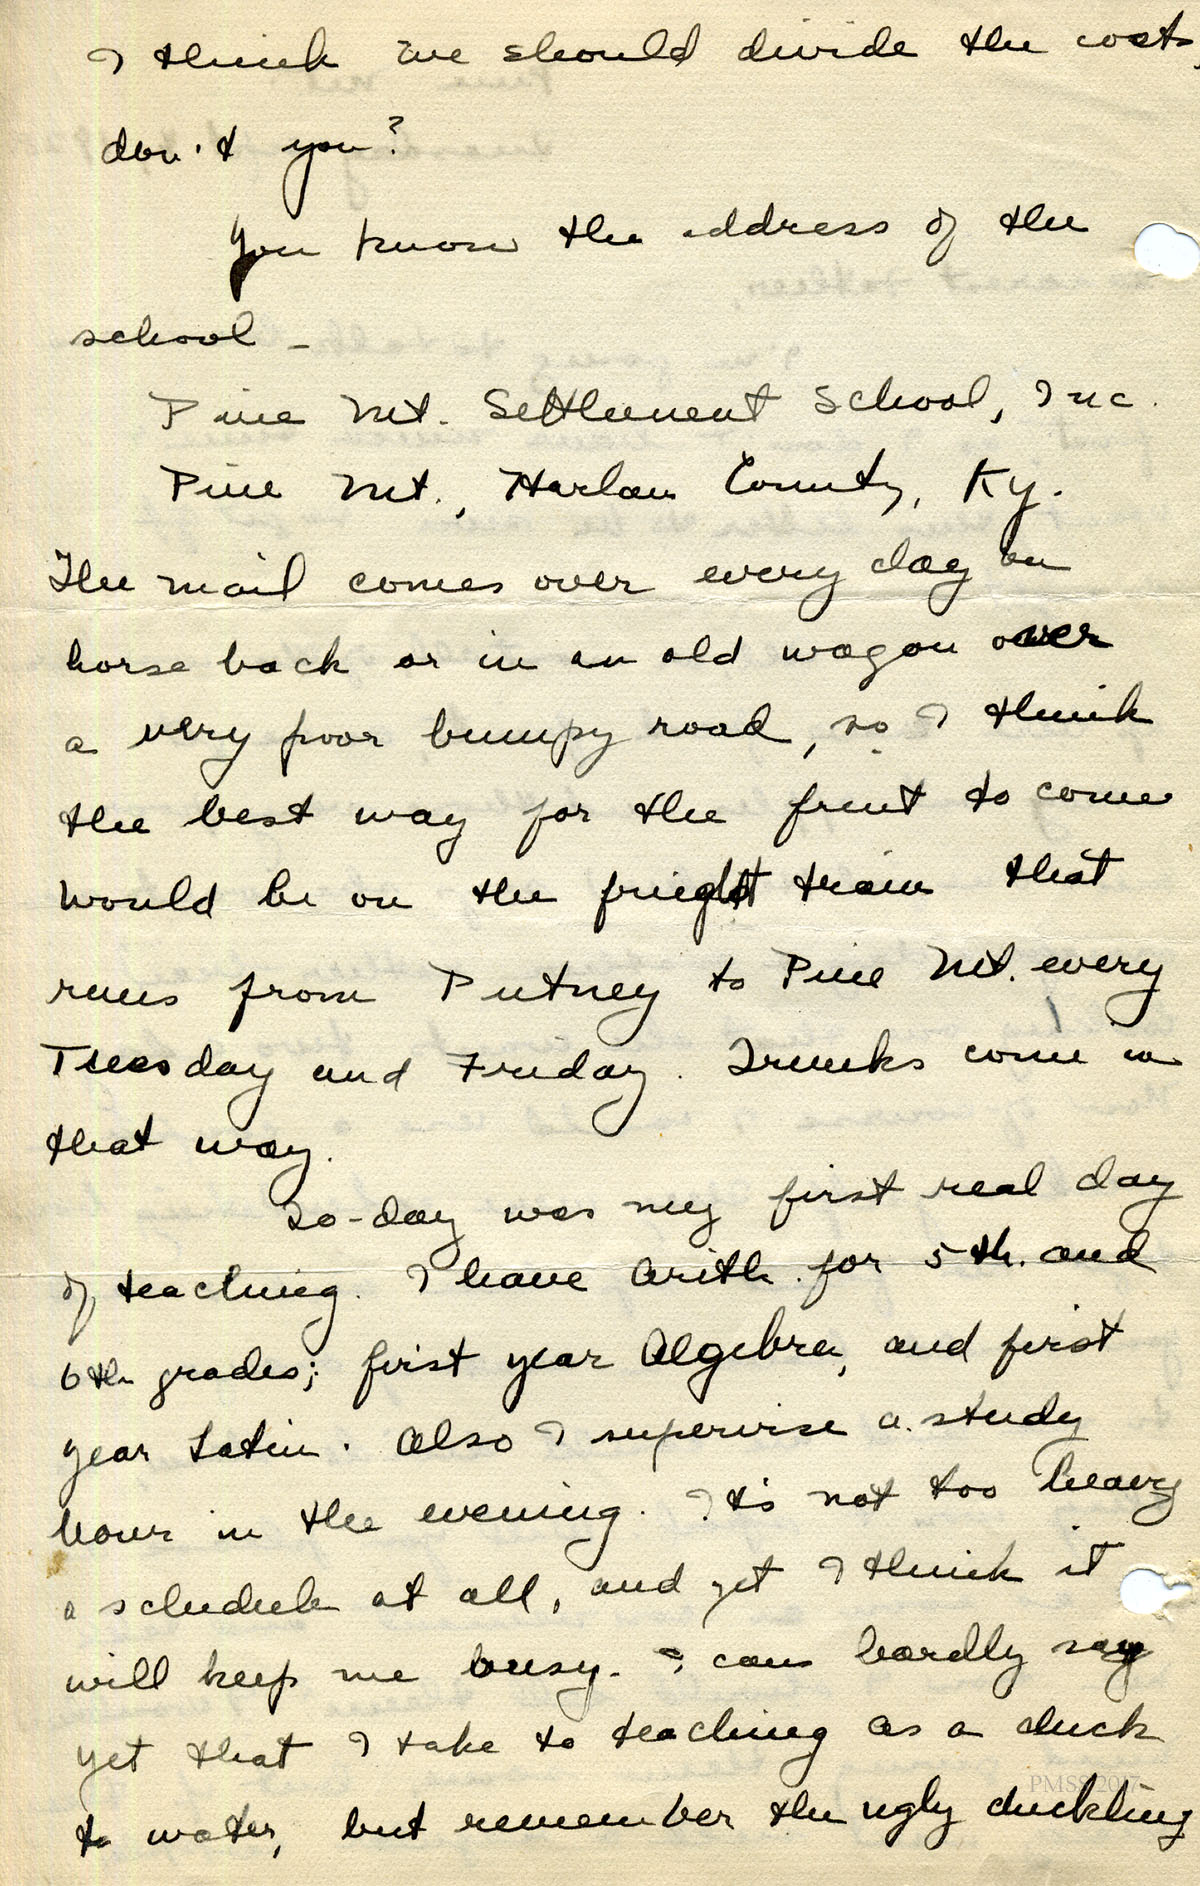 I think we should divide the costs,
don't you?
You know the address of the
school –
Pine Mt. Settlement School, Inc.
Pine Mt., Harlan County, Ky.
The mail comes over every day on
horse back or in an old wagon over
a very poor bumpy road, so I think
the best way for the fruit to come
would be on the frieght train that
runs from Putney to Pine Mt. every
Tuesday and Friday. Trunks come in
that way.
To-day was my first real day
of teaching. I have Arith. for 5th. and
6th grades; first year Algebra, and first
year Latin. Also I supervise a study
hour in the evening. It's not too heavy
a schedule at all, and yet I think it
will keep me busy. I can hardly say
yet that I take to teaching as a duck
to water, but remember the ugly duckling
PMSS 2017